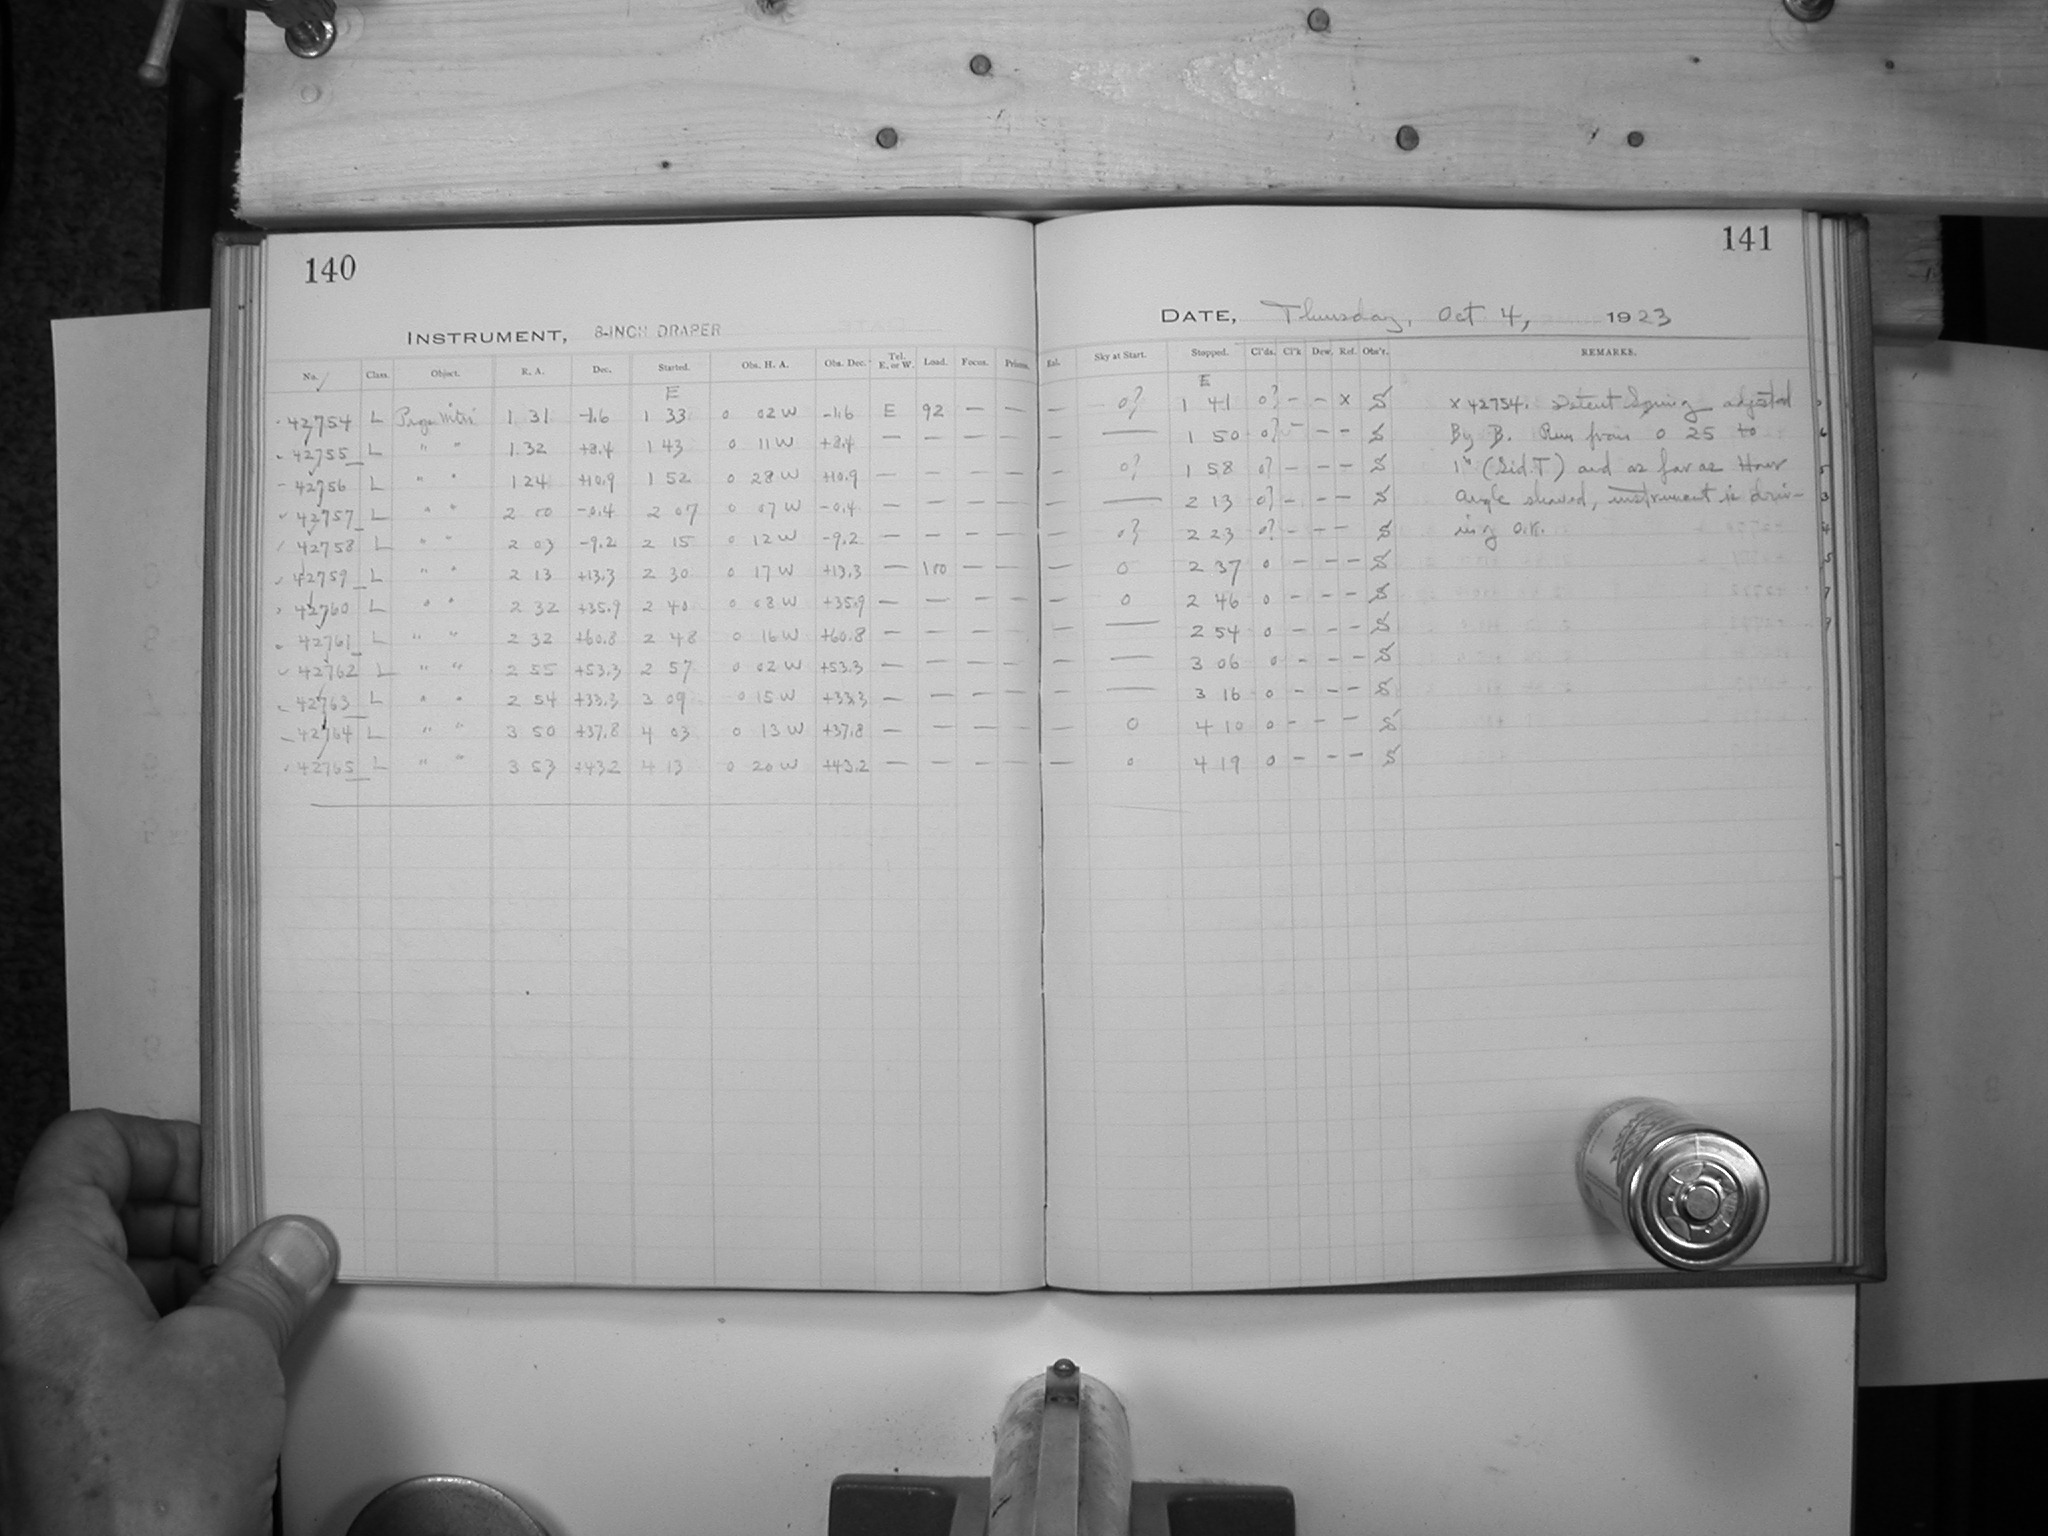 140
INSTRUMENT, 8-INCH DRAPER
No. Class. Object. R. A. Dec. Started. Obs. H. A. Obs. Dec. Tel. E. or W. Load. Focus. Prisms.
E
42754 L 1 31 -1.6 1 33 0 02 W -1.6 E 92 — —
42755 L " " 1 32 +8.4 1 43 0 11 W +8.4 — — — —
42756 L " " 1 24 +10.9 1 52 0 28 W +10.9 — — — —
42757 L " " 2 00 -0.4 2 07 0 07 W -0.4 — — — —
42758 L " " 2 03 -9.2 2 15 0 12 W -9.2 — — — —
42759 L " " 2 13 +13.3 2 30 0 17 W +13.3 — 100 — —
42760 L " " 2 32 +35.9 2 40 0 08 W +35.9 — — — —
42761 L " " 2 32 +60.8 2 48 0 16 W +60.8 — — — —
42762 L " " 2 55 +53.3 2 57 0 02 W +53.3 — — — —
42763 L " " 2 54 +33.3 3 09 0 15 W +33.3 — — — —
42764 L " " 3 50 +37.8 4 03 0 13 W +37.8 — — — —
42765 L " " 3 53 +43.2 4 13 0 20 W +43.2 — — — —
141
DATE, Thursday, Oct 4, 1923
Sky at Start. Stopped. Cl'ds. Cl'k Dew. Ref. Obs'r. REMARKS.
E
— 0? 1 41 0? - - x S x 42754. Detent Spring adjusted
— — 1 50 0? - - - S By B. Run from 0 25 to
— 0? 1 58 0? - - - S 1h (Sid.T) and as far as Hour
— — 2 13 0? - - - S Angle showed, instrument is driv-
— 0? 2 23 0? - - - S ing O.K.
— 0 2 37 0 - - - S
— 0 2 46 0 - - - S
— — 2 54 0 - - - S
— — 3 06 0 - - - S
— — 3 16 0 - - - S
— 0 4 10 0 - - - S
— 0 4 19 0 - - - S